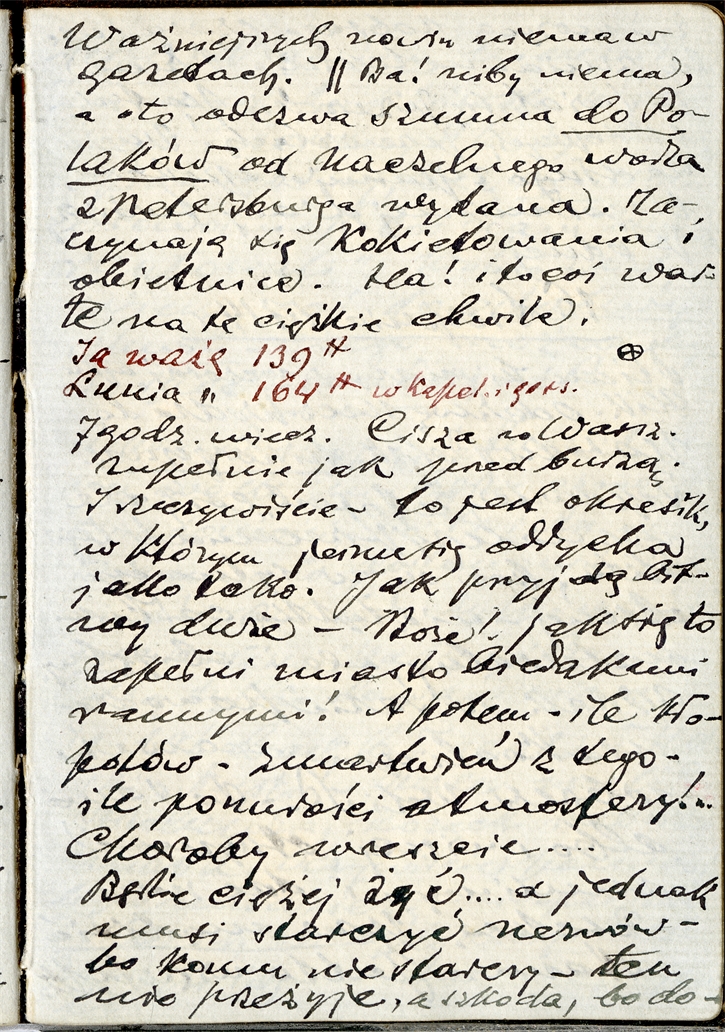 Ważniejszych nowin niema w
gazetach. || Ba! niby niema,
a oto odezwa szumna do Po-
laków od Naczelnego wodza
z Petersburga wydana. Za-
czynają się kokietowania i
obietnice. Ha! i to coś war-
te na te ciężkie chwile.
Ja ważę 139 ⊕
Lunia „ 164 w kapel. i gors.
7 godz. wiecz. Cisza w Warsz.
zupełnie jak przed burzą.
I rzeczywiście – to jest okresik,
w którym jeszcze się oddycha
jako tako. Jak przyjdą bit-
wy duże – Boże! jak się to
zapełni miasto biedakami
rannymi! A potem – ile kło-
potów – zmartwień z tego –
ile ponurości atmosfery!..
Choroby wreszcie....
Będzie ciężej żyć.... a jednak
musi starczyć nerwów –
bo komu nie starczy – ten
nie przeżyje, a szkoda, bo do-